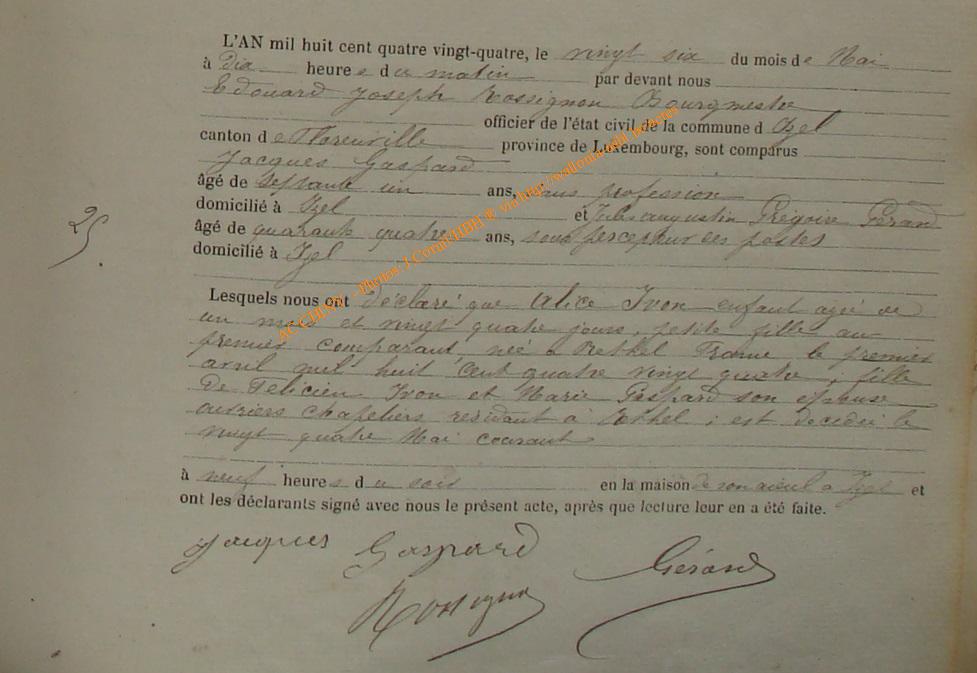 L'AN mil huit cent quatre vingt-quatre, le vingt six du mois de Mai
à dix heures du matin par devant nous
Edouard Joseph Rossignon Bourgmestre
officier de l'état civil de la commune d Izel
canton de Florenville province de Luxembourg, sont comparus
Jacques Gaspard
âgé de septante un ans, sans profession
domicilié à Izel et Jules augustin Grégoire Gérard
âgé de quarante quatre ans, sous percepteur des postes
domicilié à Izel
25.
Lesquels nous ont déclaré que Alice Ivon enfant agée de
un mois et vingt quatre jours, petite fille au
premier comparant, née à Rethel France, le premier
avril mil huit cent quatre vingt quatre, fille
de Félicien Ivon et Marie Gaspard son épouse
ouvriers chapeliers residant à Rethel ; est decédée le
vingt quatre Mai courant
à neuf heures du soir en la maison de son aieul a Izel et
ont les déclarants signé avec nous le présent acte, après que lecture leur en a été faite.
Jacques Gaspard Gérard
Rossignon
ACCHINY - Photos J Corat HBH ® via http://walloniaquid